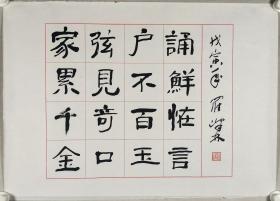 戊寅 羅
誦鮮恠言
户不百玉
弦見奇口
家累千金